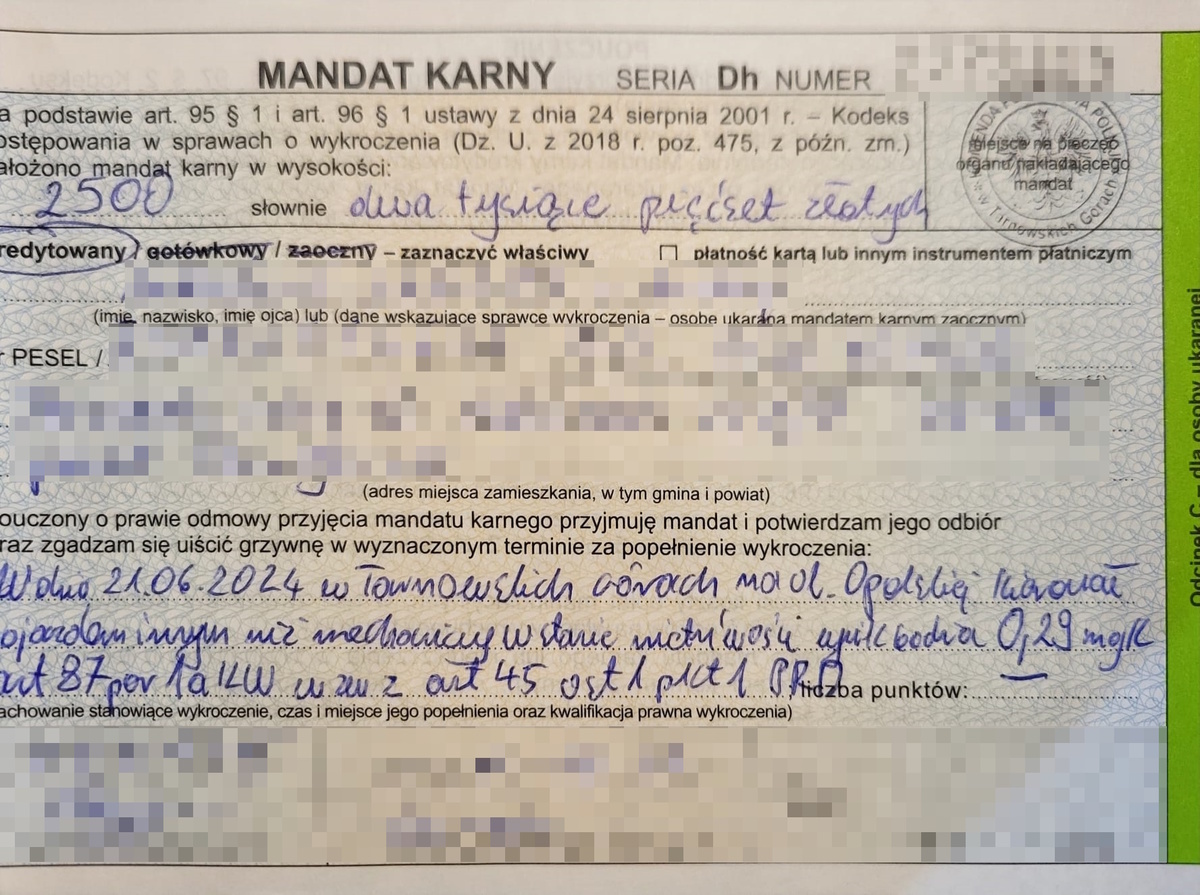 MANDAT KARNY SERIA Dh NUMER
a podstawie art. 95 § 1 i art. 96 § 1 ustawy z dnia 24 sierpnia 2001 r. – Kodeks
ostępowania w sprawach o wykroczenia (Dz. U. z 2018 r. poz. 475, z późn. zm.)
ałożono mandat karny w wysokości:
miejsce na pieczęć
organu nakładającego
mandat
w Tarnowskich Górach
2500 słownie dwa tysiące pięćset złotych
redytowany / gotówkowy / zaoczny – zaznaczyć właściwy ☐ płatność kartą lub innym instrumentem płatniczym
(imię, nazwisko, imię ojca) lub (dane wskazujące sprawcę wykroczenia – osobę ukaraną mandatem karnym zaocznym)
r PESEL /
(adres miejsca zamieszkania, w tym gmina i powiat)
ouczony o prawie odmowy przyjęcia mandatu karnego przyjmuję mandat i potwierdzam jego odbiór
raz zgadzam się uiścić grzywnę w wyznaczonym terminie za popełnienie wykroczenia:
W dniu 21.06.2024 w Tarnowskich Górach na ul. Opolskiej kierował
ojazdem innym niż mechaniczny w stanie nietrzeźwości 0,29 mg/l
art 87 par 1a KW w zw z art 45 ust 1 pkt 1 PRD liczba punktów: —
achowanie stanowiące wykroczenie, czas i miejsce jego popełnienia oraz kwalifikacja prawna wykroczenia)
Odcinek C – dla osoby ukaranej